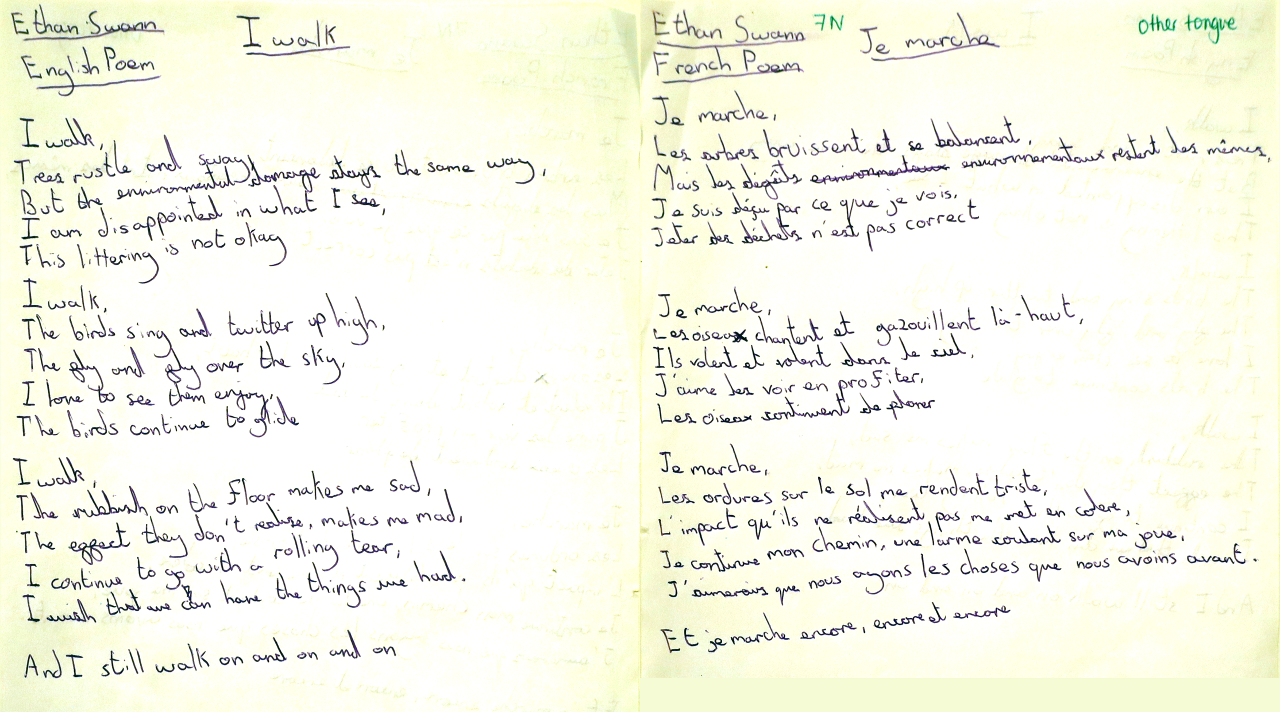 Ethan Swann
English Poem
I walk
I walk,
Trees rustle and sway,
But the environmental damage stays the same way,
I am disappointed in what I see,
This littering is not okay
I walk,
The birds sing and twitter up high,
The fly and fly over the sky,
I love to see them enjoy,
The birds continue to glide
I walk,
The rubbish on the floor makes me sad,
The effect they don't realise, makes me mad,
I continue to go with a rolling tear,
I wish that we can have the things we had.
And I still walk on and on and on
Ethan Swann 7N
French Poem
Je marche
other tongue
Je marche,
Les arbres bruissent et se balancent,
Mais les dégâts environnementaux environnementaux restent les mêmes,
Je suis déçu par ce que je vois,
Jeter des déchets n'est pas correct
Je marche,
Les oiseax chantent et gazouillent là-haut,
Ils volent et volent dans le ciel,
J'aime les voir en profiter,
Les oiseax continuent de planer
Je marche,
Les ordures sur le sol me rendent triste,
L'impact qu'ils ne réalisent pas me met en colère,
Je continue mon chemin, une larme coulant sur ma joue,
J'aimerais que nous ayons les choses que nous avoins avant.
Et je marche encore, encore et encore